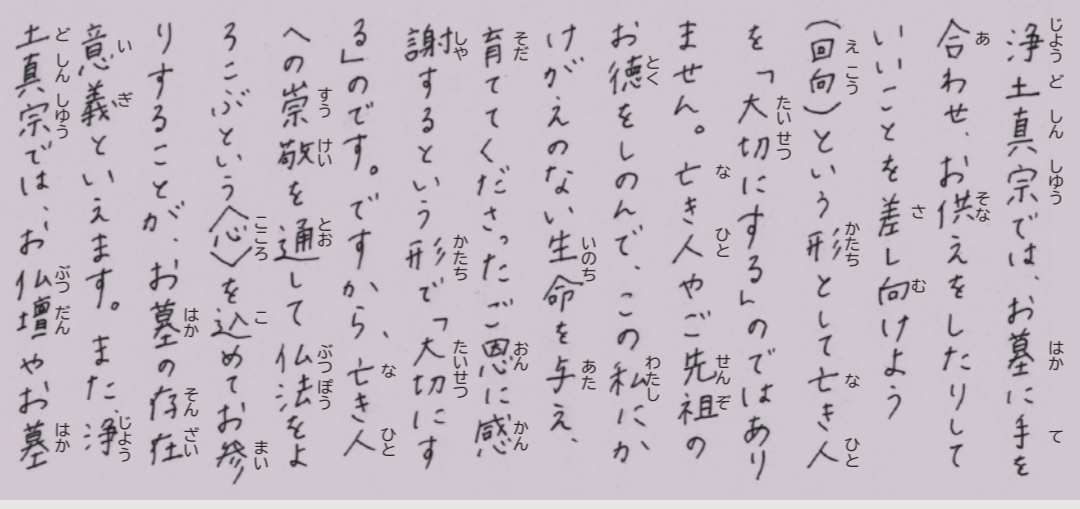 浄土真宗では、お墓に手を
合わせ、お供えをしたりして
いいことを差し向けよう
（回向）という形として亡き人
を「大切にする」のではあり
ません。亡き人やご先祖の
お徳をしのんで、この私にか
けがえのない生命を与え、
育ててくださったご恩に感
謝するという形で「大切にす
る」のです。ですから、亡き人
への崇敬を通して仏法をよ
ろこぶという〈心〉を込めてお参
りすることが、お墓の存在
意義といえます。また、浄
土真宗では、お仏壇やお墓